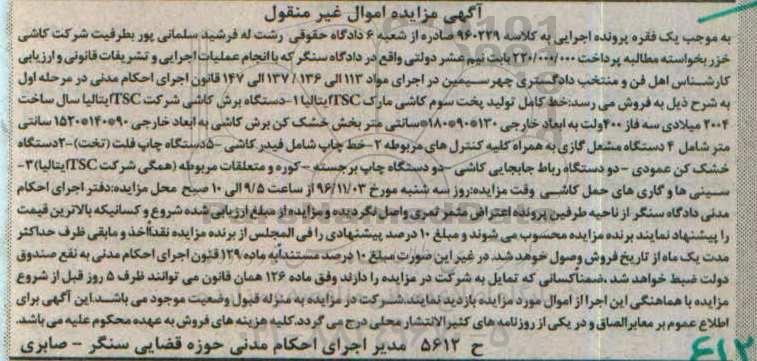 آگهی مزایده اموال غیر منقول
به موجب یک فقره پرونده اجرایی به کلاسه ۹۶۰۲۲۹ صادره از شعبه ۶ دادگاه حقوقی رشت له فرشید سلمانی پور بطرفیت شرکت کاشی
خزر بخواسته مطالبه پرداخت ۲۲۰/۰۰۰/۰۰۰ بابت نیم عشر دولتی واقع در دادگاه سنگر که باانجام عملیات اجرایی و تشریفات قانونی و ارزیابی
کارشناس اهل فن و منتخب دادگستری چهر سیمین در اجرای مواد ۱۱۳ الی ۱۳۶ / ۱۳۷ الی ۱۴۷ قانون اجرای احکام مدنی در مرحله اول
به شرح ذیل به فروش می رسد:خط کامل تولید پخت سوم کاشی مارک TSCایتالیا ۱-دستگاه برش کاشی شرکت TSCایتالیا سال ساخت
۲۰۰۴ میلادی سه فاز ۴۰۰ولت به ابعاد خارجی ۱۳۰*۹۰*۱۸۰سانتی متر بخش خشک کن برش کاشی به ابعاد خارجی ۹۰*۱۴۰*۱۵۲۰ سانتی
متر شامل ۴ دستگاه مشعل گازی به همراه کلیه کنترل های مربوطه ۲-خط چاپ شامل فیدر کاشی -۵دستگاه چاپ فلت (تخت)-۲دستگاه
خشک کن عمودی -دو دستگاه رباط جابجایی کاشی -دو دستگاه چاپ برجسته -کوره و متعلقات مربوطه (همگی شرکت TSCایتالیا)۳-
سینی ها و گاری های حمل کاشی وقت مزایده:روز سه شنبه مورخ ۹۶/۱۱/۰۳ از ساعت ۹/۵ الی ۱۰ صبح محل مزایده:دفتر اجرای احکام
مدنی دادگاه سنگر از ناحیه طرفین پرونده اعتراض مثمر ثمری واصل نگردیده و مزایده از مبلغ ارزیابی شده شروع و کسانیکه بالاترین قیمت
را پیشنهاد نمایند برنده مزایده محسوب می شوند و مبلغ ۱۰ درصد پیشنهادی را فی المجلس از برنده مزایده نقداً اخذ و مابقی ظرف حداکثر
مدت یک ماه از تاریخ فروش وصول خواهد شد. در غیر این صورت مبلغ ۱۰ درصد مستنداً به ماده ۱۲۹ قانون اجرای احکام مدنی به نفع صندوق
دولت ضبط خواهد شد .ضمناً کسانی که تمایل به شرکت در مزایده را دارند وفق ماده ۱۲۶ همان قانون می توانند ظرف ۵ روز قبل از شروع
مزایده با هماهنگی این اجرا از اموال مورد مزایده بازدید نمایند.شرکت در مزایده به منزله قبول وضعیت موجود می باشد.این آگهی برای
اطلاع عموم بر معابر الصاق و در یکی از روزنامه های کثیرالانتشار محلی درج می گردد.کلیه هزینه های فروش به عهده محکوم علیه می باشد.
ح ۵۶۱۲ مدیر اجرای احکام مدنی حوزه قضایی سنگر - صابری